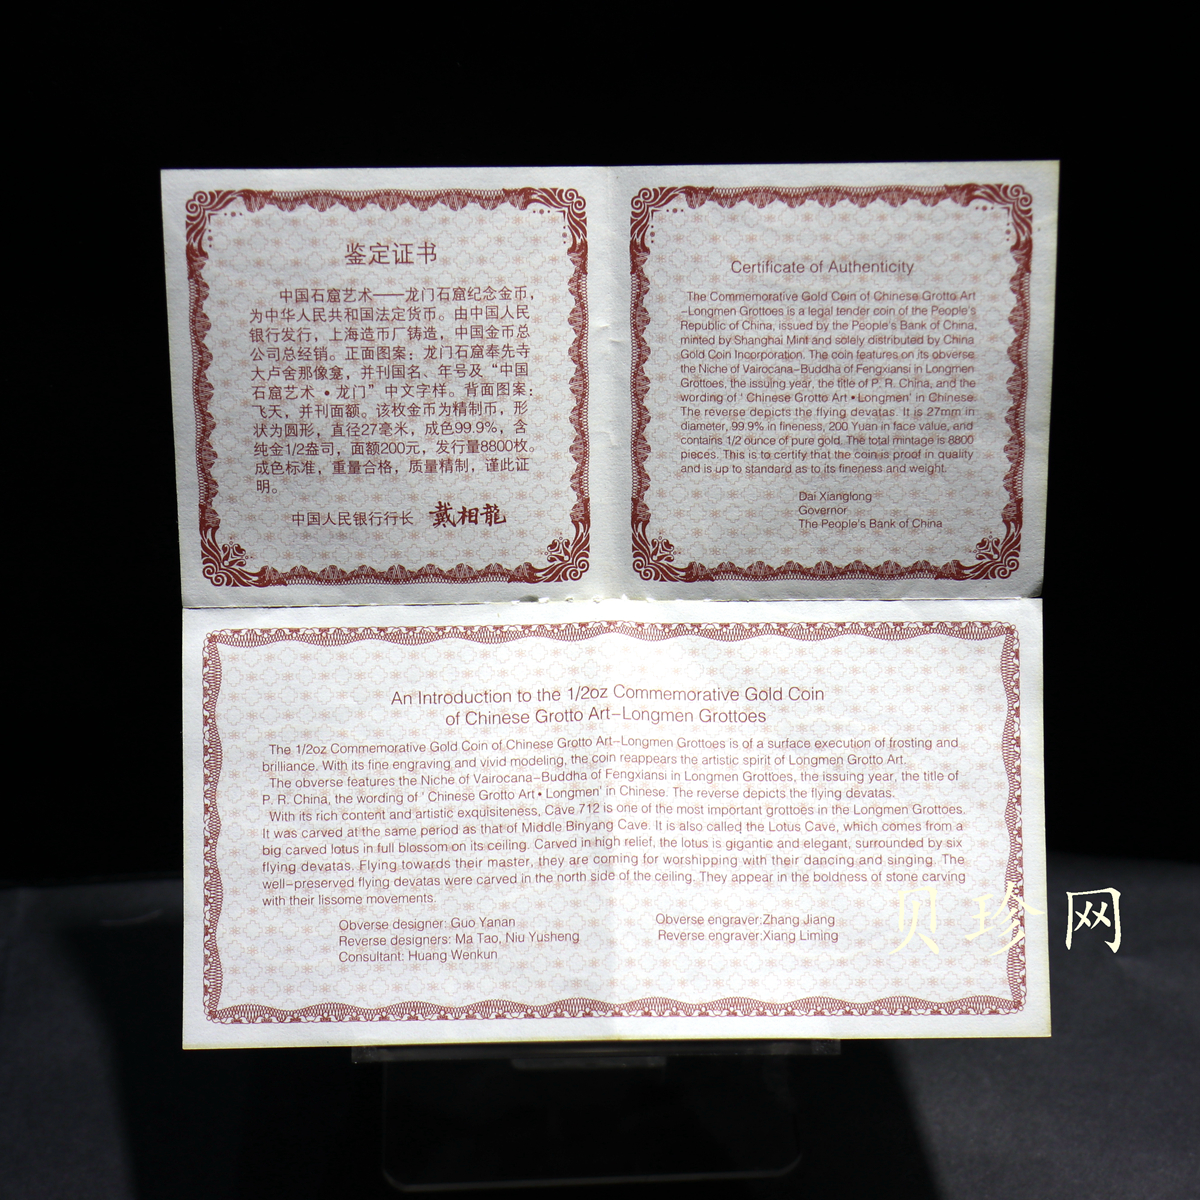 鉴定证书
中国石窟艺术——龙门石窟纪念金币，
为中华人民共和国法定货币。由中国人民
银行发行，上海造币厂铸造，中国金币总
公司总经销。正面图案：龙门石窟奉先寺
大卢舍那像龛，并刊国名、年号及“中国
石窟艺术•龙门”中文字样。背面图案：
飞天，并刊面额。该枚金币为精制币，形
状为圆形，直径27毫米，成色99.9%，含
纯金1/2盎司，面额200元，发行量8800枚。
成色标准，重量合格，质量精制，谨此证
明。
中国人民银行行长 戴相龍
Certificate of Authenticity
The Commemorative Gold Coin of Chinese Grotto Art
-Longmen Grottoes is a legal tender coin of the People's
Republic of China, issued by the People's Bank of China,
minted by Shanghai Mint and solely distributed by China
Gold Coin Incorporation. The coin features on its obverse
the Niche of Vairocana-Buddha of Fengxiansi in Longmen
Grottoes, the issuing year, the title of P. R. China, and the
wording of ' Chinese Grotto Art•Longmen' in Chinese.
The reverse depicts the flying devatas. It is 27mm in
diameter, 99.9% in fineness, 200 Yuan in face value, and
contains 1/2 ounce of pure gold. The total mintage is 8800
pieces. This is to certify that the coin is proof in quality
and is up to standard as to its fineness and weight.
Dai Xianglong
Governor
The People's Bank of China
An Introduction to the 1/2oz Commemorative Gold Coin
of Chinese Grotto Art-Longmen Grottoes
The 1/2oz Commemorative Gold Coin of Chinese Grotto Art-Longmen Grottoes is of a surface execution of frosting and
brilliance. With its fine engraving and vivid modeling, the coin reappears the artistic spirit of Longmen Grotto Art.
The obverse features the Niche of Vairocana-Buddha of Fengxiansi in Longmen Grottoes, the issuing year, the title of
P. R. China, the wording of ' Chinese Grotto Art•Longmen' in Chinese. The reverse depicts the flying devatas.
With its rich content and artistic exquisiteness, Cave 712 is one of the most important grottoes in the Longmen Grottoes.
It was carved at the same period as that of Middle Binyang Cave. It is also called the Lotus Cave, which comes from a
big carved lotus in full blossom on its ceiling. Carved in high relief, the lotus is gigantic and elegant, surrounded by six
flying devatas. Flying towards their master, they are coming for worshipping with their dancing and singing. The
well-preserved flying devatas were carved in the north side of the ceiling. They appear in the boldness of stone carving
with their lissome movements.
Obverse designer: Guo Yanan
Reverse designers: Ma Tao, Niu Yusheng
Consultant: Huang Wenkun
Obverse engraver:Zhang Jiang
Reverse engraver:Xiang Liming
贝珍网